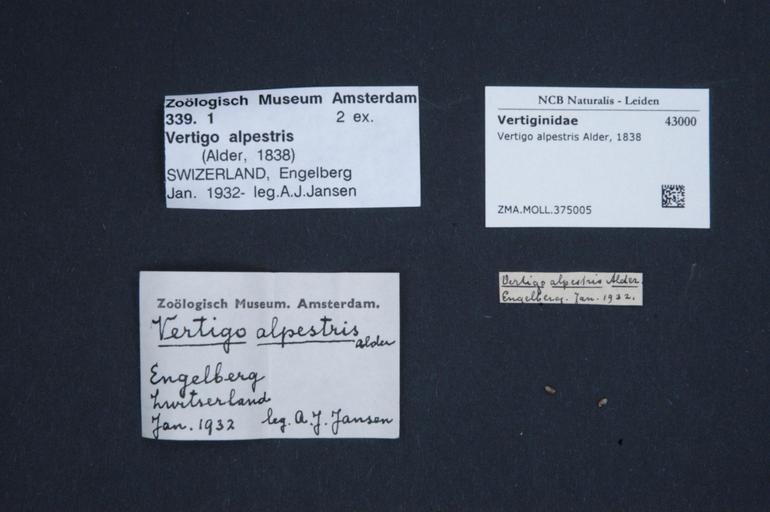 Zoölogisch Museum Amsterdam
339. 1 2 ex.
Vertigo alpestris
(Alder, 1838)
SWIZERLAND, Engelberg
Jan. 1932- leg.A.J.Jansen
NCB Naturalis - Leiden
Vertiginidae 43000
Vertigo alpestris Alder, 1838
ZMA.MOLL.375005
Zoölogisch Museum. Amsterdam.
Vertigo alpestris
alder
Engelberg
Zwitserland
Jan. 1932 leg. A. J. Jansen
Vertigo alpestris Alder.
Engelberg. Jan. 1932.